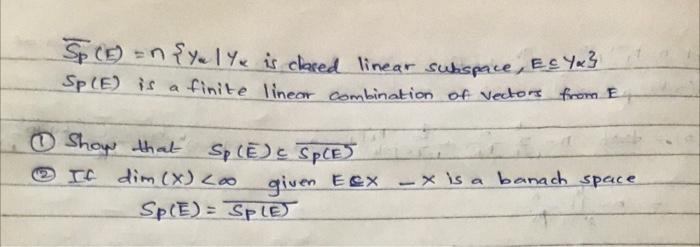 S̅p̅ (E) = ∩ {Yα | Yα is closed linear subspace, E ⊆ Yα}
Sp(E) is a finite linear combination of vectors from E
① Show that Sp(Ē) ⊆ \overline{Sp(E)}
② If dim(X) < ∞ given E ⊆ X – X is a banach space
Sp(Ē) = \overline{Sp(E)}